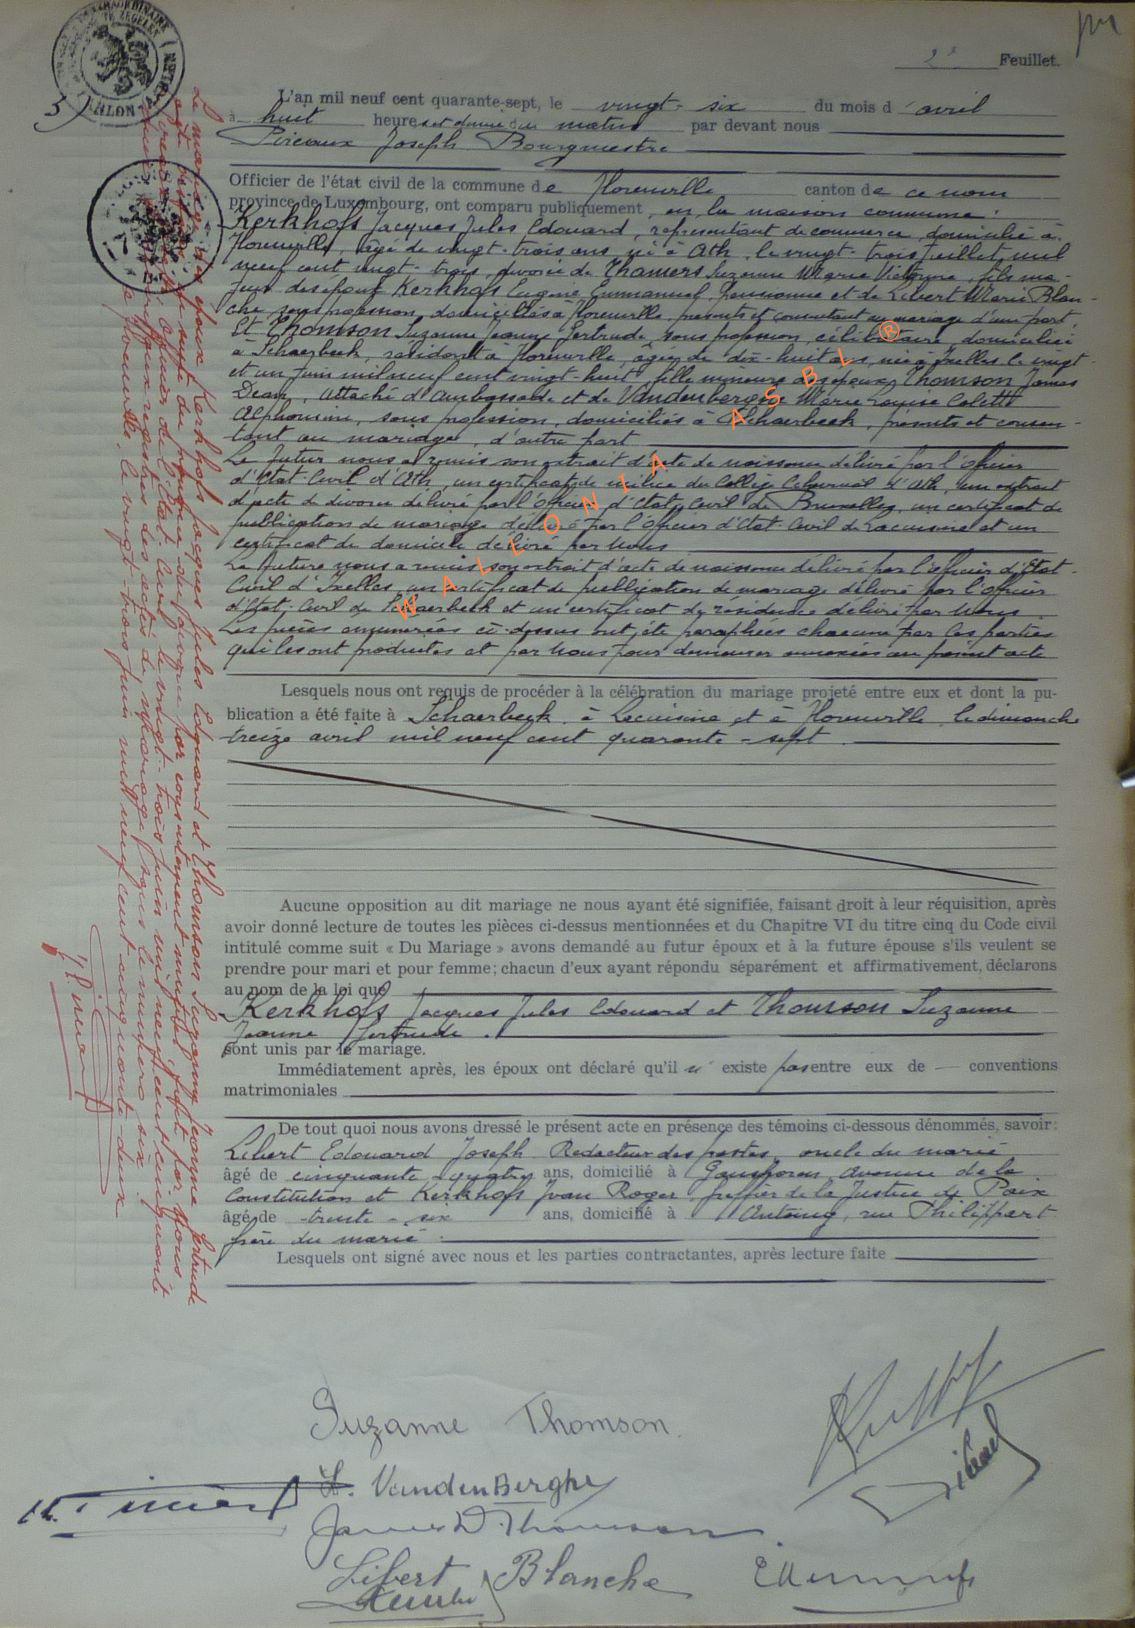 2e Feuillet.
5)
L'an mil neuf cent quarante-sept, le vingt-six du mois d'avril
à huit heures et demie du matin par devant nous
Pireaux Joseph Bourgmestre
Officier de l'état civil de la commune de Florenville canton de ce nom
province de Luxembourg, ont comparu publiquement, en la maison commune:
Kerkhofs Jacques Jules Edouard, représentant de commerce, domicilié à
Florenville, âgé de vingt-trois ans, né à Ath, le vingt-trois juillet mil
neuf cent vingt-trois, divorcé de Suzanne Marie Victorine, fils ma-
jeur des époux Kerkhofs Eugène Emmanuel, Pensionné et de Libert Marie Blan-
che, sans profession, domiciliés à Florenville, présents et consentant au mariage d'une part
Et Thomson Suzanne Jeanne Gertrude, sans profession, célibataire, domiciliée
à Schaerbeek, résidant à Florenville, âgée de dix-huit ans, née à Ixelles le vingt-
et un juin mil neuf cent vingt-huit, fille mineure des époux Thomson James
Dean, attaché d'Ambassade et de Vandenberghe Marie Louise Colette
Alphonsine, sans profession, domiciliés à Schaerbeek, présents et consen-
tant au mariage, d'autre part
Le futur nous a remis son extrait d'acte de naissance délivré par l'officier
d'Etat-Civil d'Ath, un certificat de milice du Collège Echevinal d'Ath, un extrait
d'acte de divorce délivré par l'Officier d'Etat-Civil de Bruxelles, un certificat de
publications de mariage délivré par l'Officier d'Etat-Civil de Lacuisine et un
certificat de domicile délivré par Nous
La future nous a remis son extrait d'acte de naissance délivré par l'officier d'Etat-
Civil d'Ixelles, un certificat de publication de mariage délivré par l'officier
d'Etat-Civil de Schaerbeek et un certificat de résidence délivré par Nous
Les pièces énumérées ci-dessus ont été paraphées chacune par les parties
qui les ont produites et par Nous pour demeurer annexées au présent acte
WALEONIA ASBL ®
Lesquels nous ont requis de procéder à la célébration du mariage projeté entre eux et dont la pu-
blication a été faite à Schaerbeek, à Lacuisine et à Florenville, le dimanche
treize avril mil neuf cent quarante-sept.
Aucune opposition au dit mariage ne nous ayant été signifiée, faisant droit à leur réquisition, après
avoir donné lecture de toutes les pièces ci-dessus mentionnées et du Chapitre VI du titre cinq du Code civil
intitulé comme suit « Du Mariage » avons demandé au futur époux et à la future épouse s'ils veulent se
prendre pour mari et pour femme; chacun d'eux ayant répondu séparément et affirmativement, déclarons
au nom de la loi que
Kerkhofs Jacques Jules Edouard et Thomson Suzanne
Jeanne Gertrude.
sont unis par le mariage.
Immédiatement après, les époux ont déclaré qu'il n'existe pas entre eux de — conventions
matrimoniales
De tout quoi nous avons dressé le présent acte en présence des témoins ci-dessous dénommés, savoir:
Libert Edouard Joseph Rédacteur des postes, oncle du marié
âgé de cinquante quatre ans, domicilié à Ganshoren, avenue de la
Constitution et Kerkhofs Ivan Roger, greffier de la Justice de Paix
âgé de trente-six ans, domicilié à Antoing, rue Philippart
frère du marié.
Lesquels ont signé avec nous et les parties contractantes, après lecture faite
Le mariage des époux Kerkhofs Jacques Jules Edouard et Thomson Suzanne Jeanne Gertrude
par consentement mutuel, fait par Nous
officier de l'Etat-Civil le vingt-trois juin mil neuf cent cinquante
deux registres des actes de mariage sous le numéro six.
Florenville, le vingt-trois juin mil neuf cent cinquante-deux
Suzanne Thomson.
L. VandenBerghe
James D. Thomson
Libert Blanche